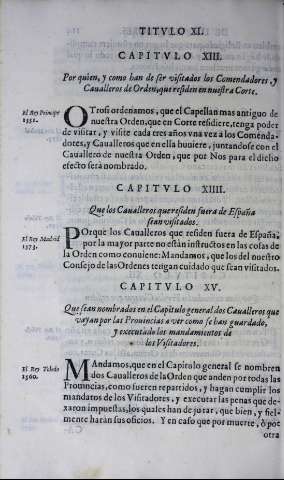 TITVLO XI.
CAPITVLO XIII.
Por quien, y como han de ser visitados los Comendadores, y
Caualleros de Orden, que residen en nuestra Corte.
El Rey Principe
1551.
OTrosi ordenamos, que el Capellan mas antiguo de
nuestra Orden, que en Corte residiere, tenga poder
de visitar, y visite cada tres años vna vez à los Comenda-
dores, y Caualleros que en ella huuiere, juntandose con el
Cauallero de nuestra Orden, que por Nos para el dicho
efecto serà nombrado.
CAPITVLO XIIII.
Que los Caualleros que residen fuera de España
sean visitados.
El Rey Madrid
1573.
POrque los Caualleros que residen fuera de España,
por la mayor parte no están instructos en las cosas de
la Orden como conuiene: Mandamos, que los del nuestro
Consejo de las Ordenes tengan cuidado que seàn visitados.
CAPITVLO XV.
Que sean nombrados en el Capitulo general dos Caualleros que
vayan por las Prouincias a ver como se han guardado,
y executado los mandamientos de
los Visitadores.
El Rey Toledo
1560.
MAndamos, que en el Capitolo general se nombren
dos Caualleros de la Orden que anden por todas las
Prouincias, como fueren repartidos, y hagan cumplir los
mandatos de los Visitadores, y executar las penas que de-
xaron impuestas, los quales han de jurar, que bien, y fiel-
mente haràn sus oficios. Y en caso que por muerte, ò por
otra